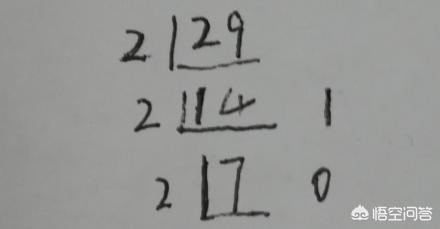 2 29
2 14 1
2 7 0
悟空问答